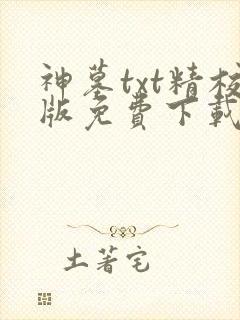 神墓txt精校
版免费下载
土著宅